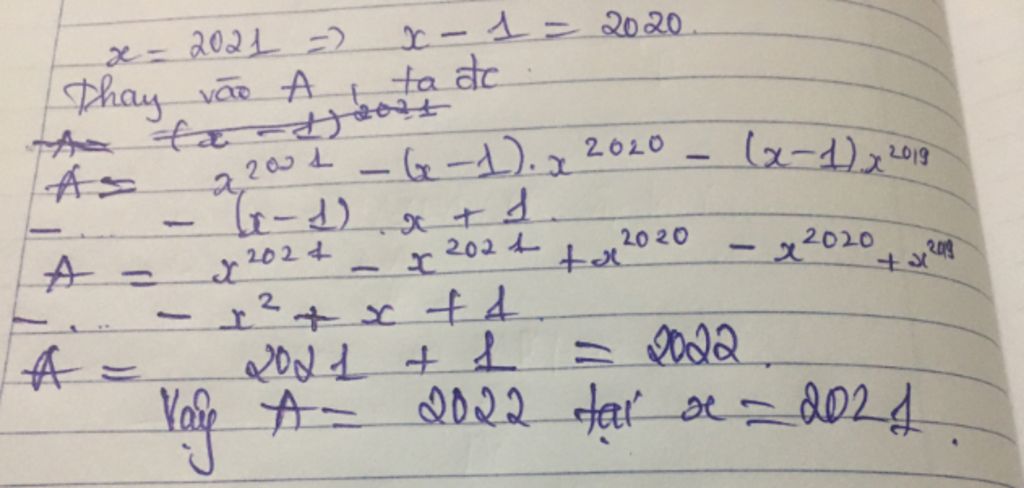 x = 2021 => x - 1 = 2020.
Thay vào A, ta đc
A = (x - 1)^2021
A = x^2021 - (x - 1).x^2020 - (x - 1)x^2019
- ... - (x - 1).x + 1.
A = x^2021 - x^2021 + x^2020 - x^2020 + x^2019
- ... - x^2 + x + 1.
A = 2021 + 1 = 2022.
Vậy A = 2022 tại x = 2021.